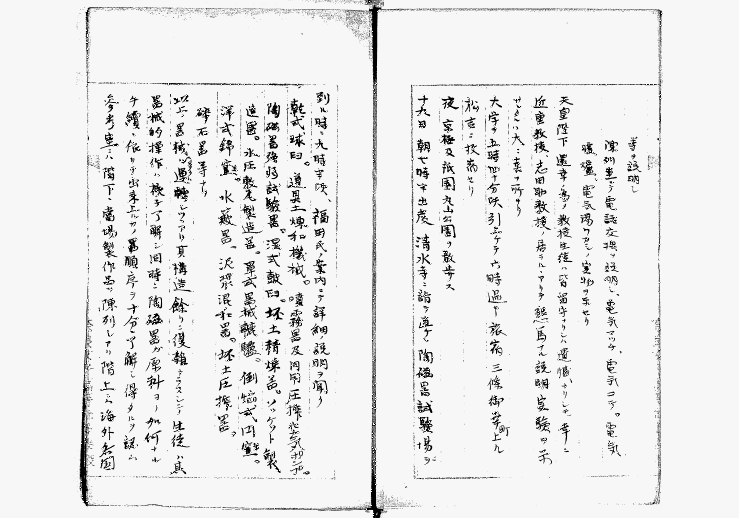 等ヲ説明シ
陳列室ニテ電話交換ヲ説明シ、電気マッチ、電気コテ。電気
暖爐、電気湯ワカシノ実物ヲ示セリ
天皇陛下還幸ノ為メ教授生徒ハ皆留守ナリシハ遺憾ナリシモ幸ニ
近重教授、志田助教授ノ居ラルヽアリテ態々説明実験ヲ示
大学ヲ五時四十分吹引上ゲテ六時過ギ旅宿三條御幸町上ル
松吉ニ投宿セリ
夜 京極及祇園丸山公園ヲ散歩ス
十九日 朝七時半出発 清水寺ニ詣デ直チニ陶磁器試験場ヲ
到ル時ニ九時半吹、福田氏ノ案内ニテ詳細説明ヲ聞ク
乾式球臼。道具土煉和機械。噴霧器及同用圧搾空気ポンプ。
陶磁器強弱試験器。湿式皷臼。坏土精煉器。ソッケット製
造器。水圧敷瓦製造器。単式器械轆轤。倒焔式円窯。
洋式錦窯。水簸器。泥漿混和器。坏土圧搾器。
砕石器等ナリ
以上ノ器械ハ運轉シツヽアリ其構造餘リニ複雑ナラズシテ生徒ハ其
器械的操作ノ様子了解シ同時ニ陶磁器ガ原料ヨリ如何ナル
手續ニ依リテ出来上ルカノ順序ヲ十分ニ了解シ得タルヲ認ム
参考室ニハ階下ニ當場製作品ヲ陳列シアリ階上ニハ海外各国